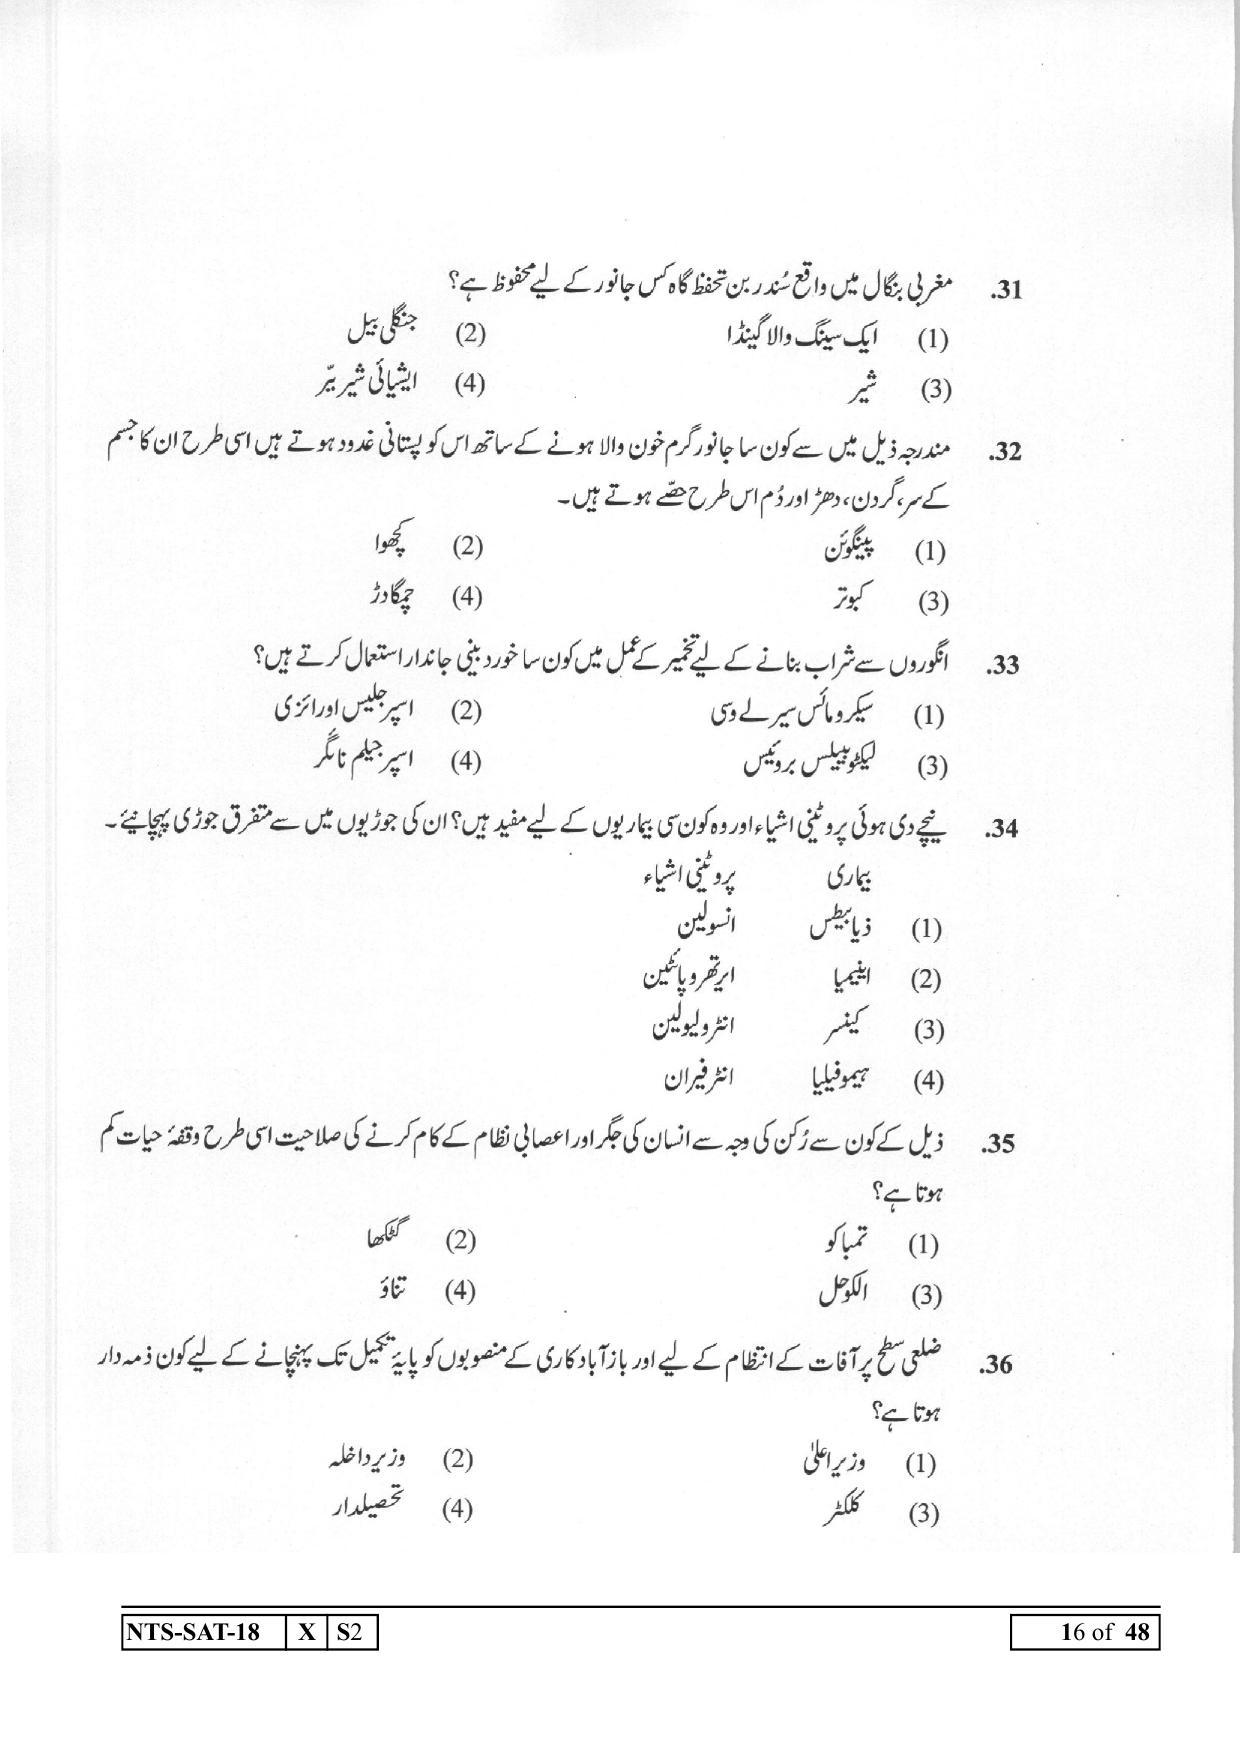 31. مغربی بنگال میں واقع سُندر بن تحفظ گاہ کس جانور کے لیے محفوظ ہے؟
(1) ایک سینگ والا گینڈا (2) جنگلی بیل
(3) شیر (4) ایشیائی شیر ببّر
32. مندرجہ ذیل میں سے کون سا جانور گرم خون والا ہونے کے ساتھ اس کو پستانی غدود ہوتے ہیں اسی طرح ان کا جسم
کے سر، گردن، دھڑ اور دُم اس طرح حصّے ہوتے ہیں۔
(1) پینگوئن (2) کچھوا
(3) کبوتر (4) چمگادڑ
33. انگوروں سے شراب بنانے کے لیے تخمیر کے عمل میں کون سا خورد بینی جاندار استعمال کرتے ہیں؟
(1) سیکرومائس سیرلے وسی (2) اسپرجلیس اورائزی
(3) لیکٹوبیلس بروئیس (4) اسپرجیلم نائگر
34. نیچے دی ہوئی پروٹینی اشیاء اور وہ کون سی بیماریوں کے لیے مفید ہیں؟ ان کی جوڑیوں میں سے متفرق جوڑی پہچانیئے۔
بیماری پروٹینی اشیاء
(1) ذیابیطس انسولین
(2) اینیمیا ایرتھروپائٹین
(3) کینسر انٹرولیولین
(4) ہیموفیلیا انٹرفیران
35. ذیل کے کون سے رُکن کی وجہ سے انسان کی جگر اور اعصابی نظام کے کام کرنے کی صلاحیت اسی طرح وقفۂ حیات کم
ہوتا ہے؟
(1) تمباکو (2) گٹکھا
(3) الکوحل (4) تناؤ
36. ضلعی سطح پر آفات کے انتظام کے لیے اور بازآبادکاری کے منصوبوں کو پایۂ تکمیل تک پہنچانے کے لیے کون ذمہ دار
ہوتا ہے؟
(1) وزیرِاعلیٰ (2) وزیرِداخلہ
(3) کلکٹر (4) تحصیلدار
NTS-SAT-18 X S2 16 of 48